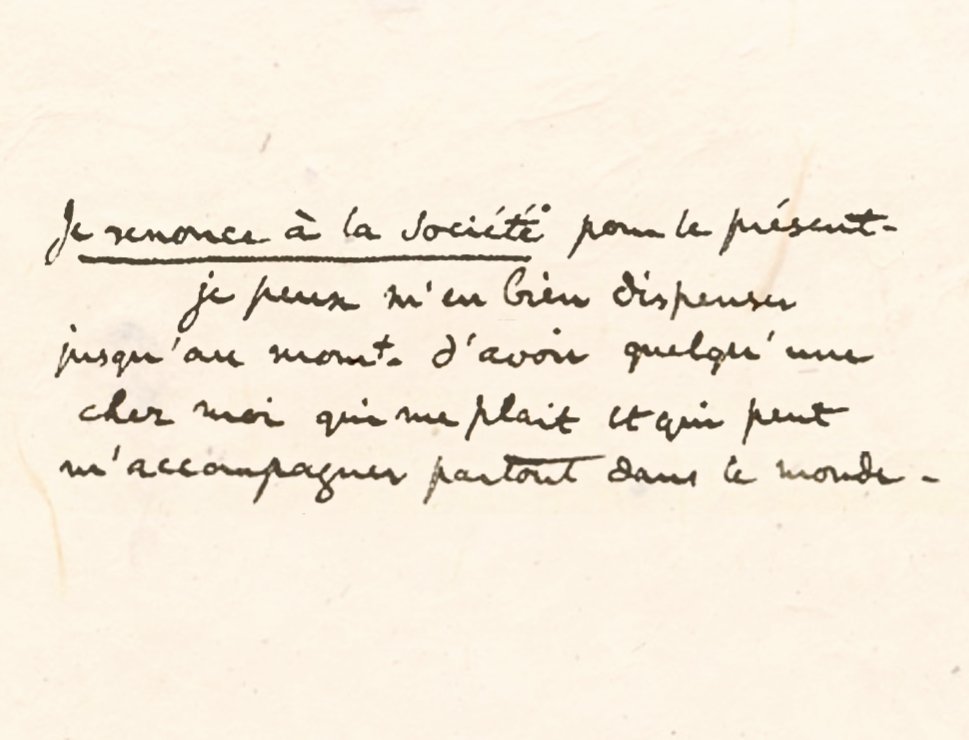 Je renonce à la Société pour le présent-
je peux m'en bien dispenser
jusqu'au momt. d'avoir quelqu'une
chez moi qui me plait et qui peut
m'accompagner partout dans le monde -